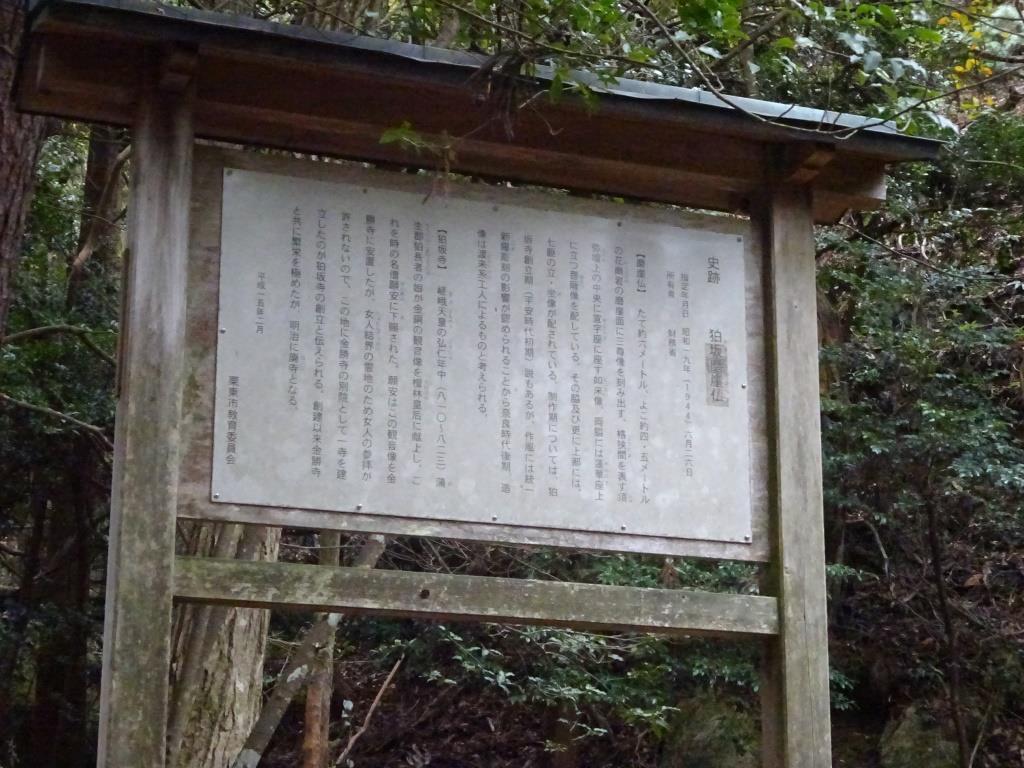 史跡 狛坂磨崖仏
指定年月日 昭和一九年(1944)六月二六日
所有者 財務省
【磨崖仏】 たて約六メートル、よこ約四・五メートル
の花崗岩の磨崖面に三尊像を刻み出す。格狭間を表す須
弥壇上の中央に宣字座に座す如来像、両脇には蓮華座上
に立つ菩薩像を配している。その脇及び更に上部には、
七躯の立・坐像が配されている。制作期については、狛
坂寺創立期(平安時代初期)説もあるが、作風には統一
新羅彫刻の影響が認められることから奈良時代後期、造
像は渡来系工人によるものと考えられる。
【狛坂寺】 嵯峨天皇の弘仁年中(八一〇~八二三)蒲
生郡狛長者の娘が金銅の観音像を檀林皇后に献上し、こ
れを時の名僧願安に下賜された。願安はこの観音像を金
勝寺に安置したが、女人結界の霊地のため女人の参拝が
許されないので、この地に金勝寺の別院として一寺を建
立したのが狛坂寺の創立と伝えられる。創建以来金勝寺
と共に繁栄を極めたが、明治に廃寺となる。
平成一五年二月
栗東市教育委員会